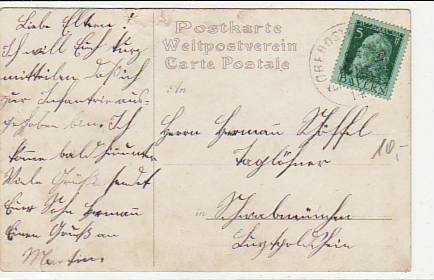 Liebe Eltern!
Ich will Euch kurz
mitteilen daß ich
zur Infantrie aus-
gehoben bin. Ich
komme bald
Viele Grüße sendet
Euer Sohn Herman
Einen Gruß an
Martin
Postkarte
Weltpostverein
Carte Postale
An
Herrn Herman Schöffel
Taglöhner
in Schwabmünchen
5
BAYERN
10,-